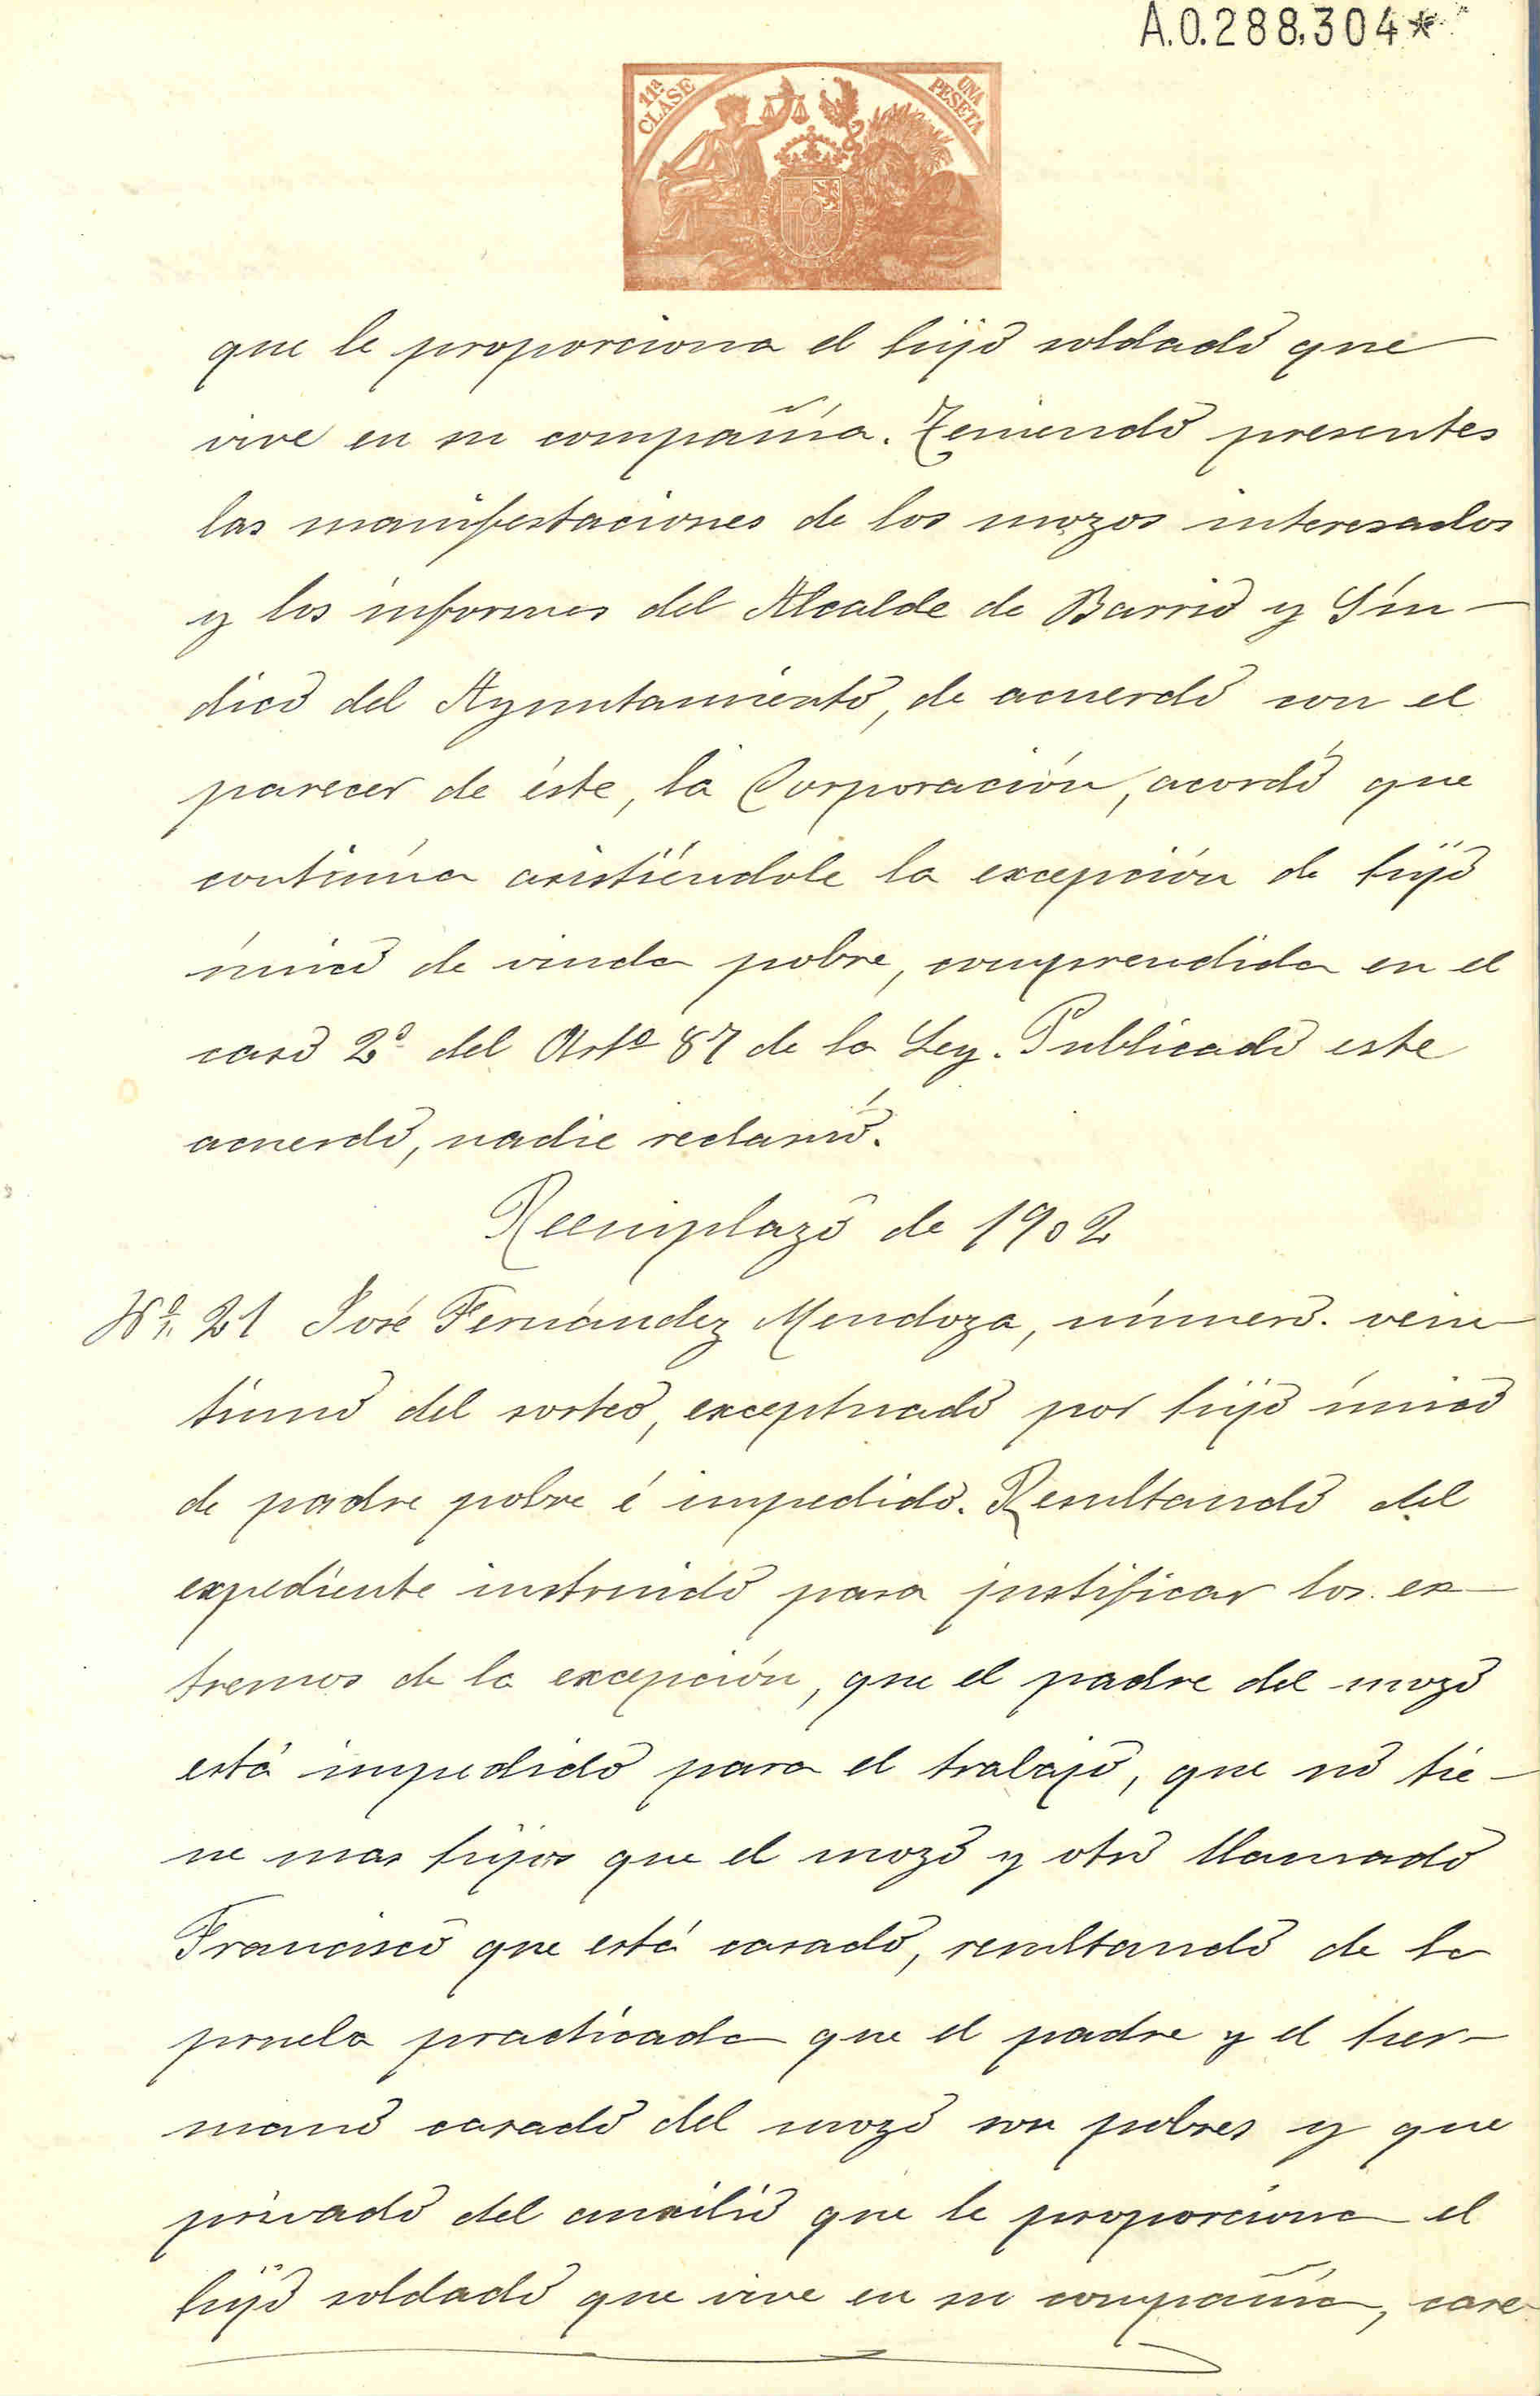 A.0.288,304*
11ª CLASE
UNA PESETA
que le proporciona el hijo soldado que
vive en su compañía. Teniendo presentes
las manifestaciones de los mozos interesados
y los informes del Alcalde de Barrio y Sín-
dico del Ayuntamiento, de acuerdo con el
parecer de éste, la Corporación, acordó que
continúa asistiéndole la excepción de hijo
único de viuda pobre, comprendida en el
caso 2º del Artº 87 de la Ley. Publicado este
acuerdo, nadie reclamó.
Reemplazo de 1902
Nº. 21 José Fernández Mendoza, número. vein
tiuno del sorteo, exceptuado por hijo único
de padre pobre é impedido. Resultando del
expediente instruido para justificar los ex-
tremos de la excepción, que el padre del mozo
está impedido para el trabajo, que no tie-
ne mas hijos que el mozo y otro llamado
Francisco que está casado, resultando de la
prueba practicada que el padre y el her-
mano casado del mozo son pobres y que
privado del auxilio que le proporciona el
hijo soldado que vive en su compañía, care